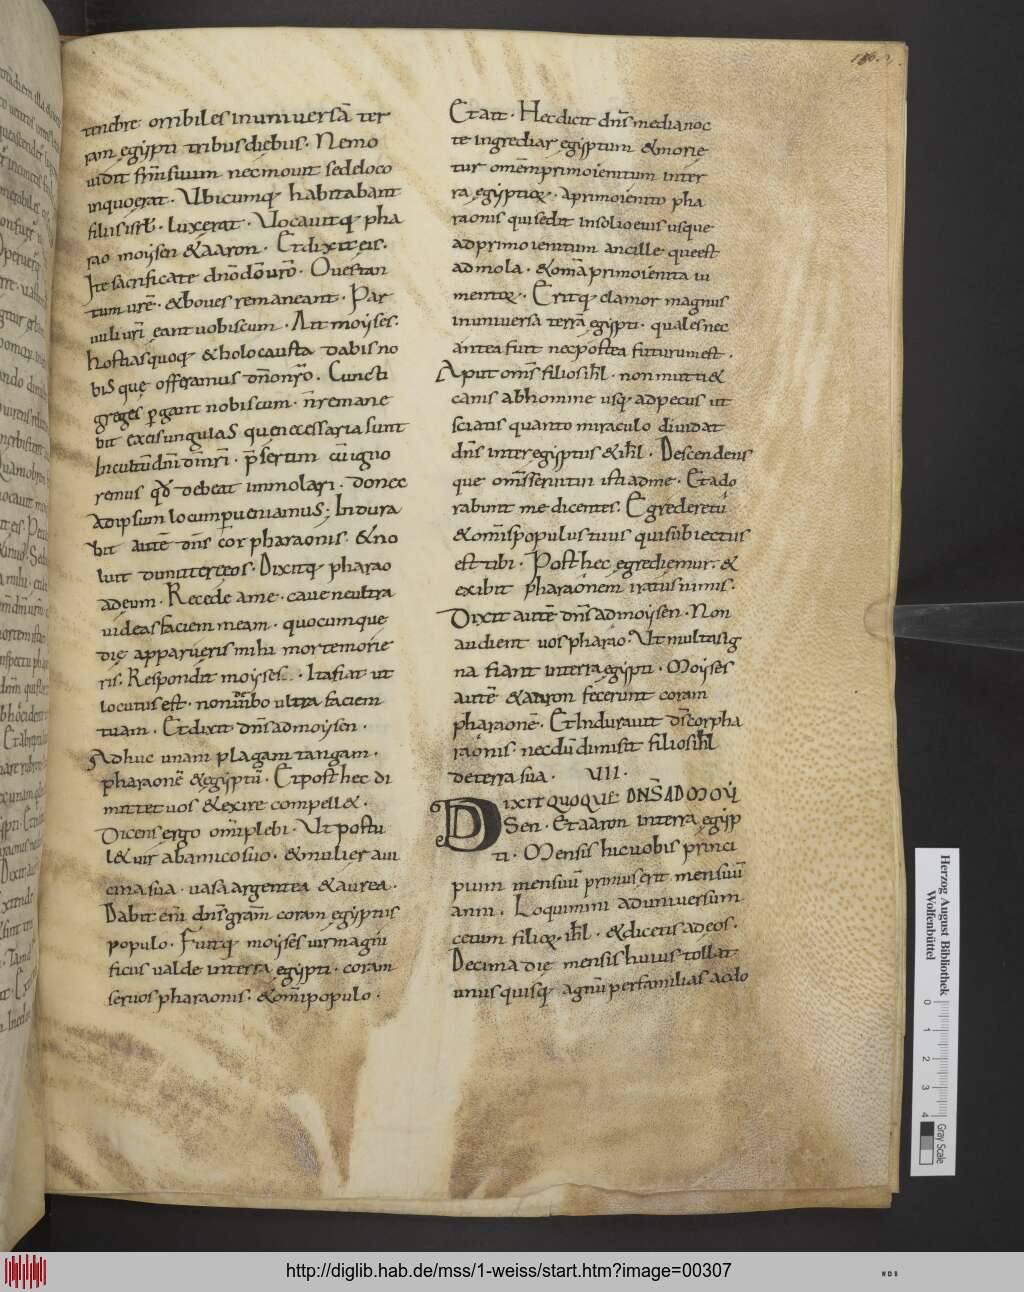 tenebre orribiles in uniuersā ter
ram egýpti tribus diebus. Nemo
uidit frm̄ suum nec mouit se de loco
in quo erat. Ubicumq; habitabant
filii isrł. lux erat. Uocauitq; pha
rao moýsen & aaron. Et dixit eis.
Ite sacrificate dnō dō urō. Oues tan
tum urē. & boues remaneant. Par
uuli urī eant uobiscum. Ait moýses.
hostias quoq; & holocausta dabis no
bis quę offeramus dnō nrō. Cuncti
greges pgant nobiscum. n̄ remane
bit ex eis ungula. S que necessaria sunt
In cultū dnī dī nrī. p̄sertim cū igno
remus qd̄ debeat immolari. donec
ad ipsum locum perueniamus; Indura
bit autē dn̄s cor pharaonis. & no
luit dimittere eos. Dixitq; pharao
ad eum. Recede a me. caue ne ultra
uideas faciem meam. quocumque
die apparueris mihi morte morie
ris. Respondit moýses. Ita fiat ut
locutus est. non uidebo ultra faciem
tuam. Et dixit dn̄s ad moýsen.
Adhuc unam plagam tangam.
pharaonē & egýptū. Et post hec di
mittet uos & exire compell&.
Dices ergo omī plebi. Ut postu
l& uir ab amico suo. & mulier a ui
cina sua. uasa argentea & aurea.
Dabit em̄ dn̄s gram̄ coram egýptiis
populo. Fuitq; moýses uir magni
ficus ualde in terra egýpti. coram
seruos pharaonis. & omī populo.
Et ait. Hec dicit dn̄s media noc
te ingrediar egýptum & morie
tur omē primogenitum in ter
ra egýptioꝝ. a primogenito pha
raonis qui sedit in solio eius usque
ad primogenitum ancille que est
ad mola. & omā primogenita iu
mentoꝝ. Eritq; clamor magnus
in uniuersa terrā egýpti. qualis nec
antea fuit nec postea futurum est.
Aput om̄s filios ihł. non mutti&
canis ab homine usq; ad pecus ut
sciatis quanto miraculo diuidat
dn̄s inter egýptius & ihł. Descendens
que om̄s serui tui isti ad me. Et ado
rabunt me dicentes. Egrederetū
& om̄s populus tuus qui subiectus
est tibi. Post hec egrediemur. &
exibit pharaonem iratus nimis.
Dixit autē dn̄s ad moýsen. Non
audient uos pharao. Ut multa sig
na fiant in terra egýpti. Moýses
autē & aaron fecerunt coram
pharaonē. Et Indurauit dn̄s cor pha
raonis. nec dū dimisit filios ihł
de terra sua. VIII.
DIXIT QUOQUE DN̄S AD MOÝ
Sen. Et aaron in terra egýp
ti. Mensis hic uobis princi
pium mensuū primus erit mensuū
anni. Loquimini ad uniuersum
cetum filioꝝ. ihł. & dicetis ad eos.
Decima die mensis huius tollat
unus quisq; agnū per familias ac do
Herzog August Bibliothek
Wolfenbüttel
0 1 2 3 4
Gray Scale
http://diglib.hab.de/mss/1-weiss/start.htm?image=00307